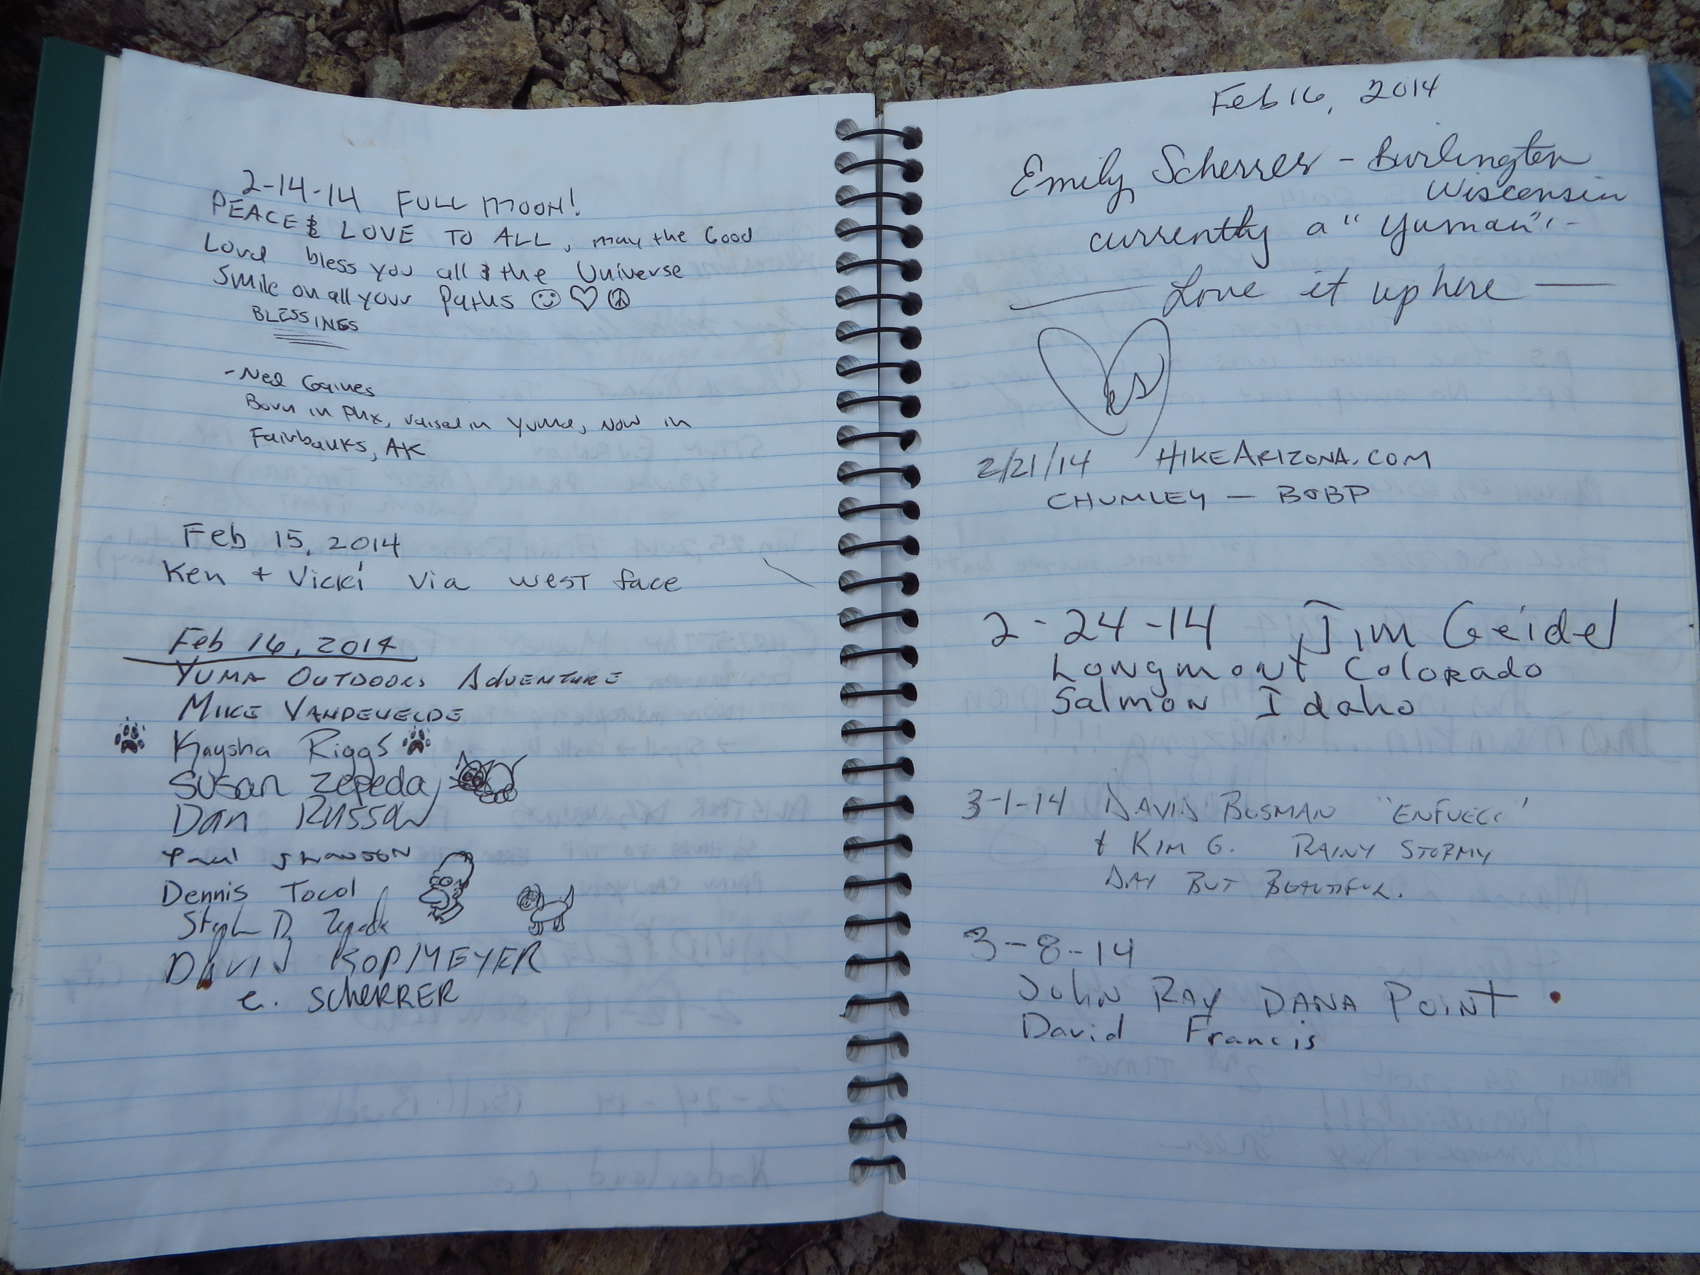 2-14-14 FULL MOON!
PEACE & LOVE TO ALL, may the Good
Lord bless you all & the Universe
Smile on all your Paths
BLESSINGS
- Ned Gaines
Born in PHX, raised in Yuma, now in
Fairbanks, AK
Feb 15, 2014
Ken + Vicki via west face
Feb 16, 2014
YUMA OUTDOORS ADVENTURE
MIKE VANDEVELDE
Kaysha Riggs
Susan Zepeda
Dan Russow
Paul
Dennis Tocol
D. Zepeda
DAVID KOPMEYER
e. SCHERRER
Feb 16, 2014
Emily Scherrer - Burlington
Wisconsin
currently a "Yuman"
Love it up here
es
2/21/14 HIKEARIZONA.COM
CHUMLEY — BOBP
2-24-14 Jim Geidel
Longmont Colorado
Salmon Idaho
3-1-14 DAVID BUSMAN "ENFUEGO"
+ KIM G. RAINY STORMY
DAY BUT BEAUTIFUL.
3-8-14
John RAY DANA POINT
David Francis